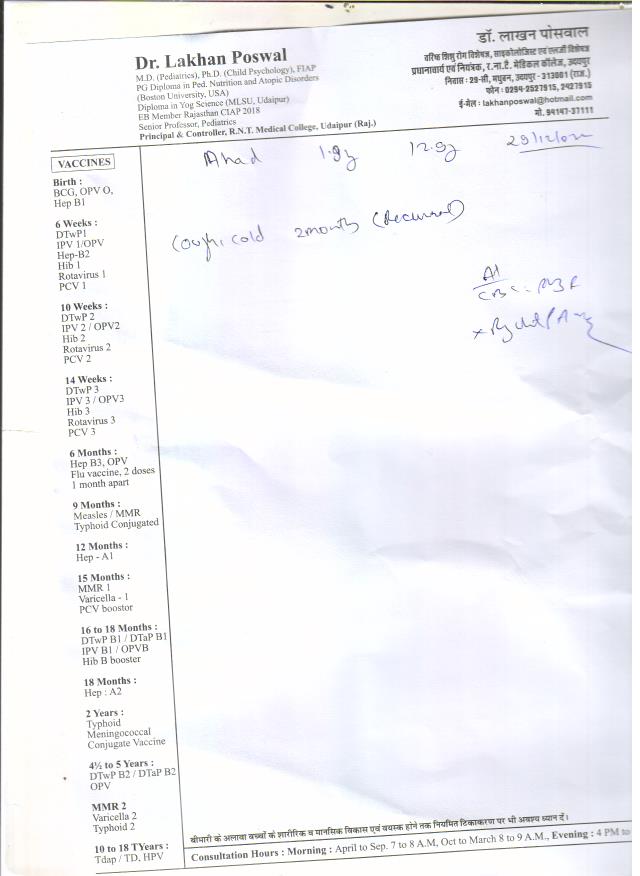 Dr. Lakhan Poswal
M.D. (Pediatrics), Ph.D. (Child Psychology), FIAP
PG Diploma in Ped. Nutrition and Atopic Disorders
(Boston University, USA)
Diploma in Yog Science (MLSU, Udaipur)
EB Member Rajasthan CIAP 2018
Senior Professor, Pediatrics
Principal & Controller, R.N.T. Medical College, Udaipur (Raj.)
डॉ. लाखन पोसवाल
वरिष्ठ शिशु रोग विशेषज्ञ, साइकोलोजिस्ट एवं एलर्जी विशेषज्ञ
प्रधानाचार्य एवं नियंत्रक, र.ना.टै. मेडिकल कॉलेज, उदयपुर
निवास : 29-सी, मधुबन, उदयपुर - 313001 (राज.)
फोन : 0294-2527915, 2427915
ई-मैल : lakhanposwal@hotmail.com
मो. 94147-37111
Ahad 1.9y 12.9 29/12/022
Cough, cold 2 month (Recurrent)
CBC
VACCINES
Birth :
BCG, OPV O,
Hep B1
6 Weeks :
DTwP1
IPV 1/OPV
Hep-B2
Hib 1
Rotavirus 1
PCV 1
10 Weeks :
DTwP 2
IPV 2 / OPV2
Hib 2
Rotavirus 2
PCV 2
14 Weeks :
DTwP 3
IPV 3 / OPV3
Hib 3
Rotavirus 3
PCV 3
6 Months :
Hep B3, OPV
Flu vaccine, 2 doses
1 month apart
9 Months :
Measles / MMR
Typhoid Conjugated
12 Months :
Hep - A1
15 Months :
MMR 1
Varicella - 1
PCV boostor
16 to 18 Months :
DTwP B1 / DTaP B1
IPV B1 / OPVB
Hib B booster
18 Months :
Hep : A2
2 Years :
Typhoid
Meningococcal
Conjugate Vaccine
4½ to 5 Years :
DTwP B2 / DTaP B2
OPV
MMR 2
Varicella 2
Typhoid 2
10 to 18 TYears :
Tdap / TD, HPV
बीमारी के अलावा बच्चों के शारीरिक व मानसिक विकास एवं वयस्क होने तक नियमित टिकाकरण पर भी अवश्य ध्यान दें।
Consultation Hours : Morning : April to Sep. 7 to 8 A.M, Oct to March 8 to 9 A.M., Evening : 4 PM to